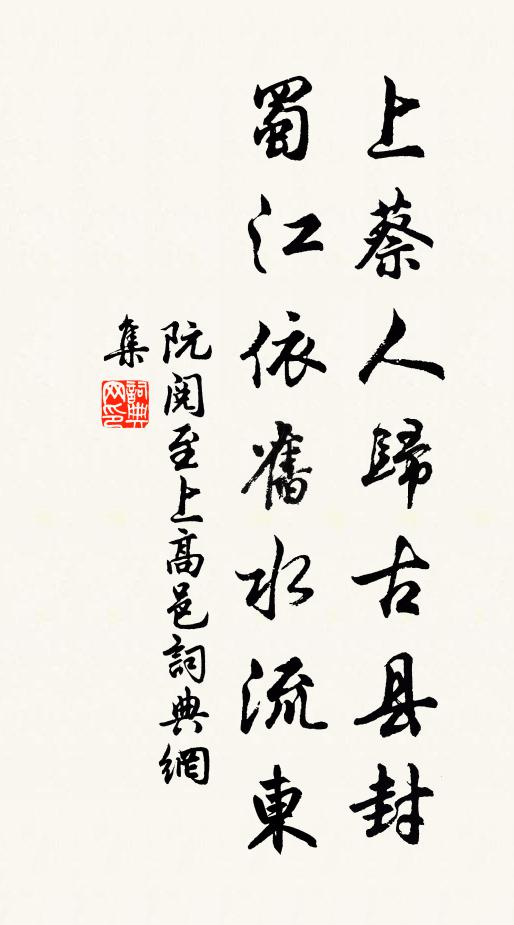 上蔡人歸古县封
蜀江依舊水流東
阮閱至上高邑詞典網
集
詞典網印